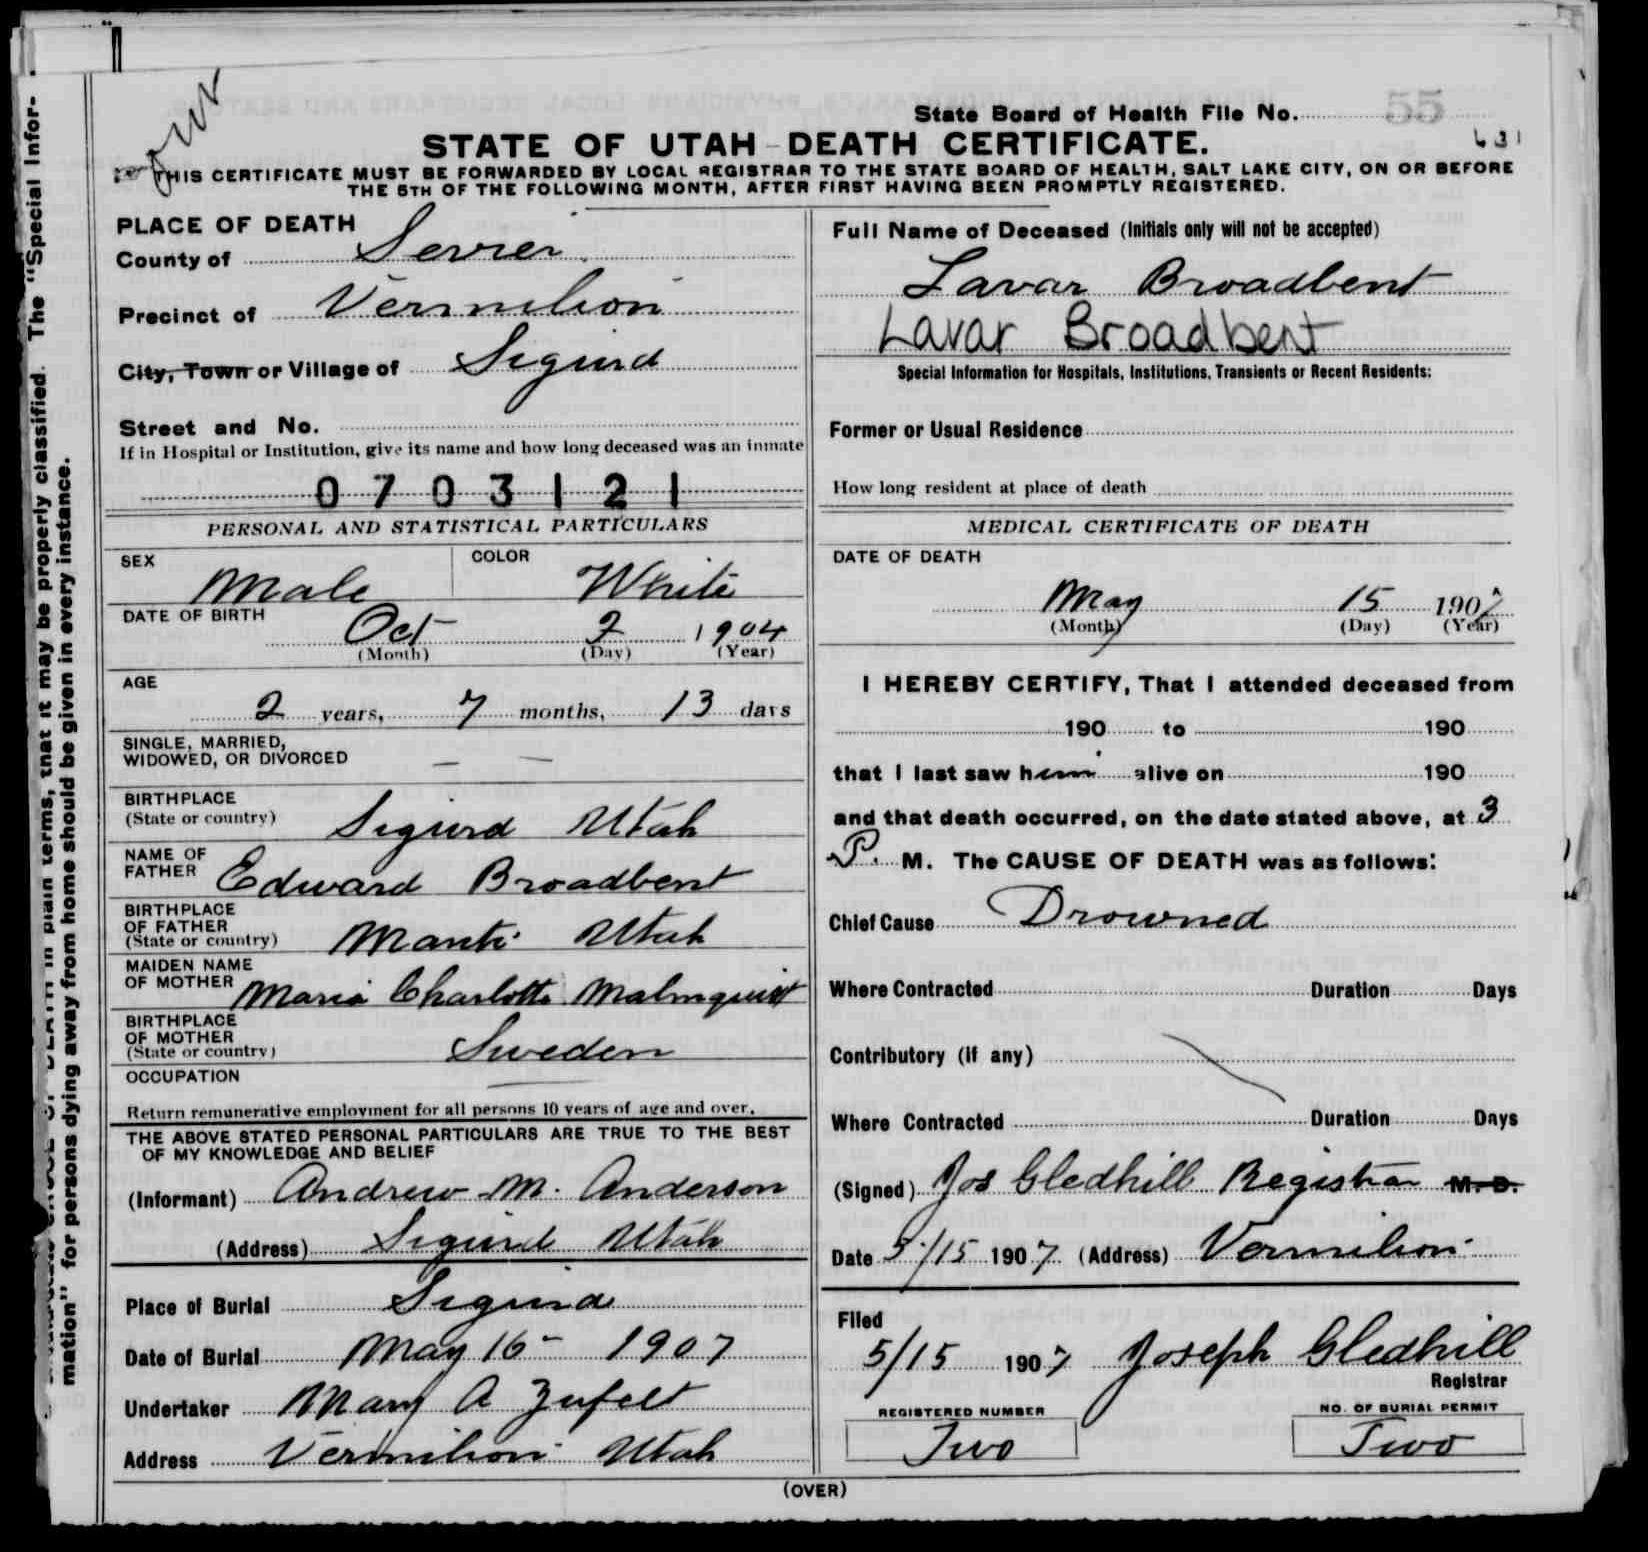 State Board of Health File No. 55
STATE OF UTAH - DEATH CERTIFICATE.
631
THIS CERTIFICATE MUST BE FORWARDED BY LOCAL REGISTRAR TO THE STATE BOARD OF HEALTH, SALT LAKE CITY, ON OR BEFORE
THE 5TH OF THE FOLLOWING MONTH, AFTER FIRST HAVING BEEN PROMPTLY REGISTERED.
PLACE OF DEATH
County of Sevier
Precinct of Vermilion
City, Town or Village of Sigurd
Street and No.
If in Hospital or Institution, give its name and how long deceased was an inmate
0703121
PERSONAL AND STATISTICAL PARTICULARS
SEX Male COLOR White
DATE OF BIRTH
Oct 2 1904
(Month) (Day) (Year)
AGE
2 years, 7 months, 13 days
SINGLE, MARRIED,
WIDOWED, OR DIVORCED — —
BIRTHPLACE
(State or country) Sigurd Utah
NAME OF
FATHER Edward Broadbent
BIRTHPLACE
OF FATHER
(State or country) Manti Utah
MAIDEN NAME
OF MOTHER Maria Charlotte Malmquist
BIRTHPLACE
OF MOTHER
(State or country) Sweden
OCCUPATION
Return remunerative employment for all persons 10 years of age and over.
THE ABOVE STATED PERSONAL PARTICULARS ARE TRUE TO THE BEST
OF MY KNOWLEDGE AND BELIEF
(Informant) Andrew M. Anderson
(Address) Sigurd Utah
Place of Burial Sigurd
Date of Burial May 16 - 1907
Undertaker Mary A Zufelt
Address Vermilion Utah
Full Name of Deceased (Initials only will not be accepted)
Lavar Broadbent
Lavar Broadbent
Special Information for Hospitals, Institutions, Transients or Recent Residents:
Former or Usual Residence
How long resident at place of death
MEDICAL CERTIFICATE OF DEATH
DATE OF DEATH
May 15 1907
(Month) (Day) (Year)
I HEREBY CERTIFY, That I attended deceased from
190 to 190
that I last saw him alive on 190
and that death occurred, on the date stated above, at 3
P. M. The CAUSE OF DEATH was as follows:
Chief Cause Drowned
Where Contracted Duration Days
Contributory (if any)
Where Contracted Duration Days
(Signed) Jos Gledhill Registrar M. D.
Date 5/15 1907 (Address) Vermilion
Filed
5/15 1907 Joseph Gledhill
Registrar
REGISTERED NUMBER
Two
NO. OF BURIAL PERMIT
Two
(OVER)
The "Special Infor-
DEATH in plain terms, that it may be properly classified.
mation" for persons dying away from home should be given in every instance.